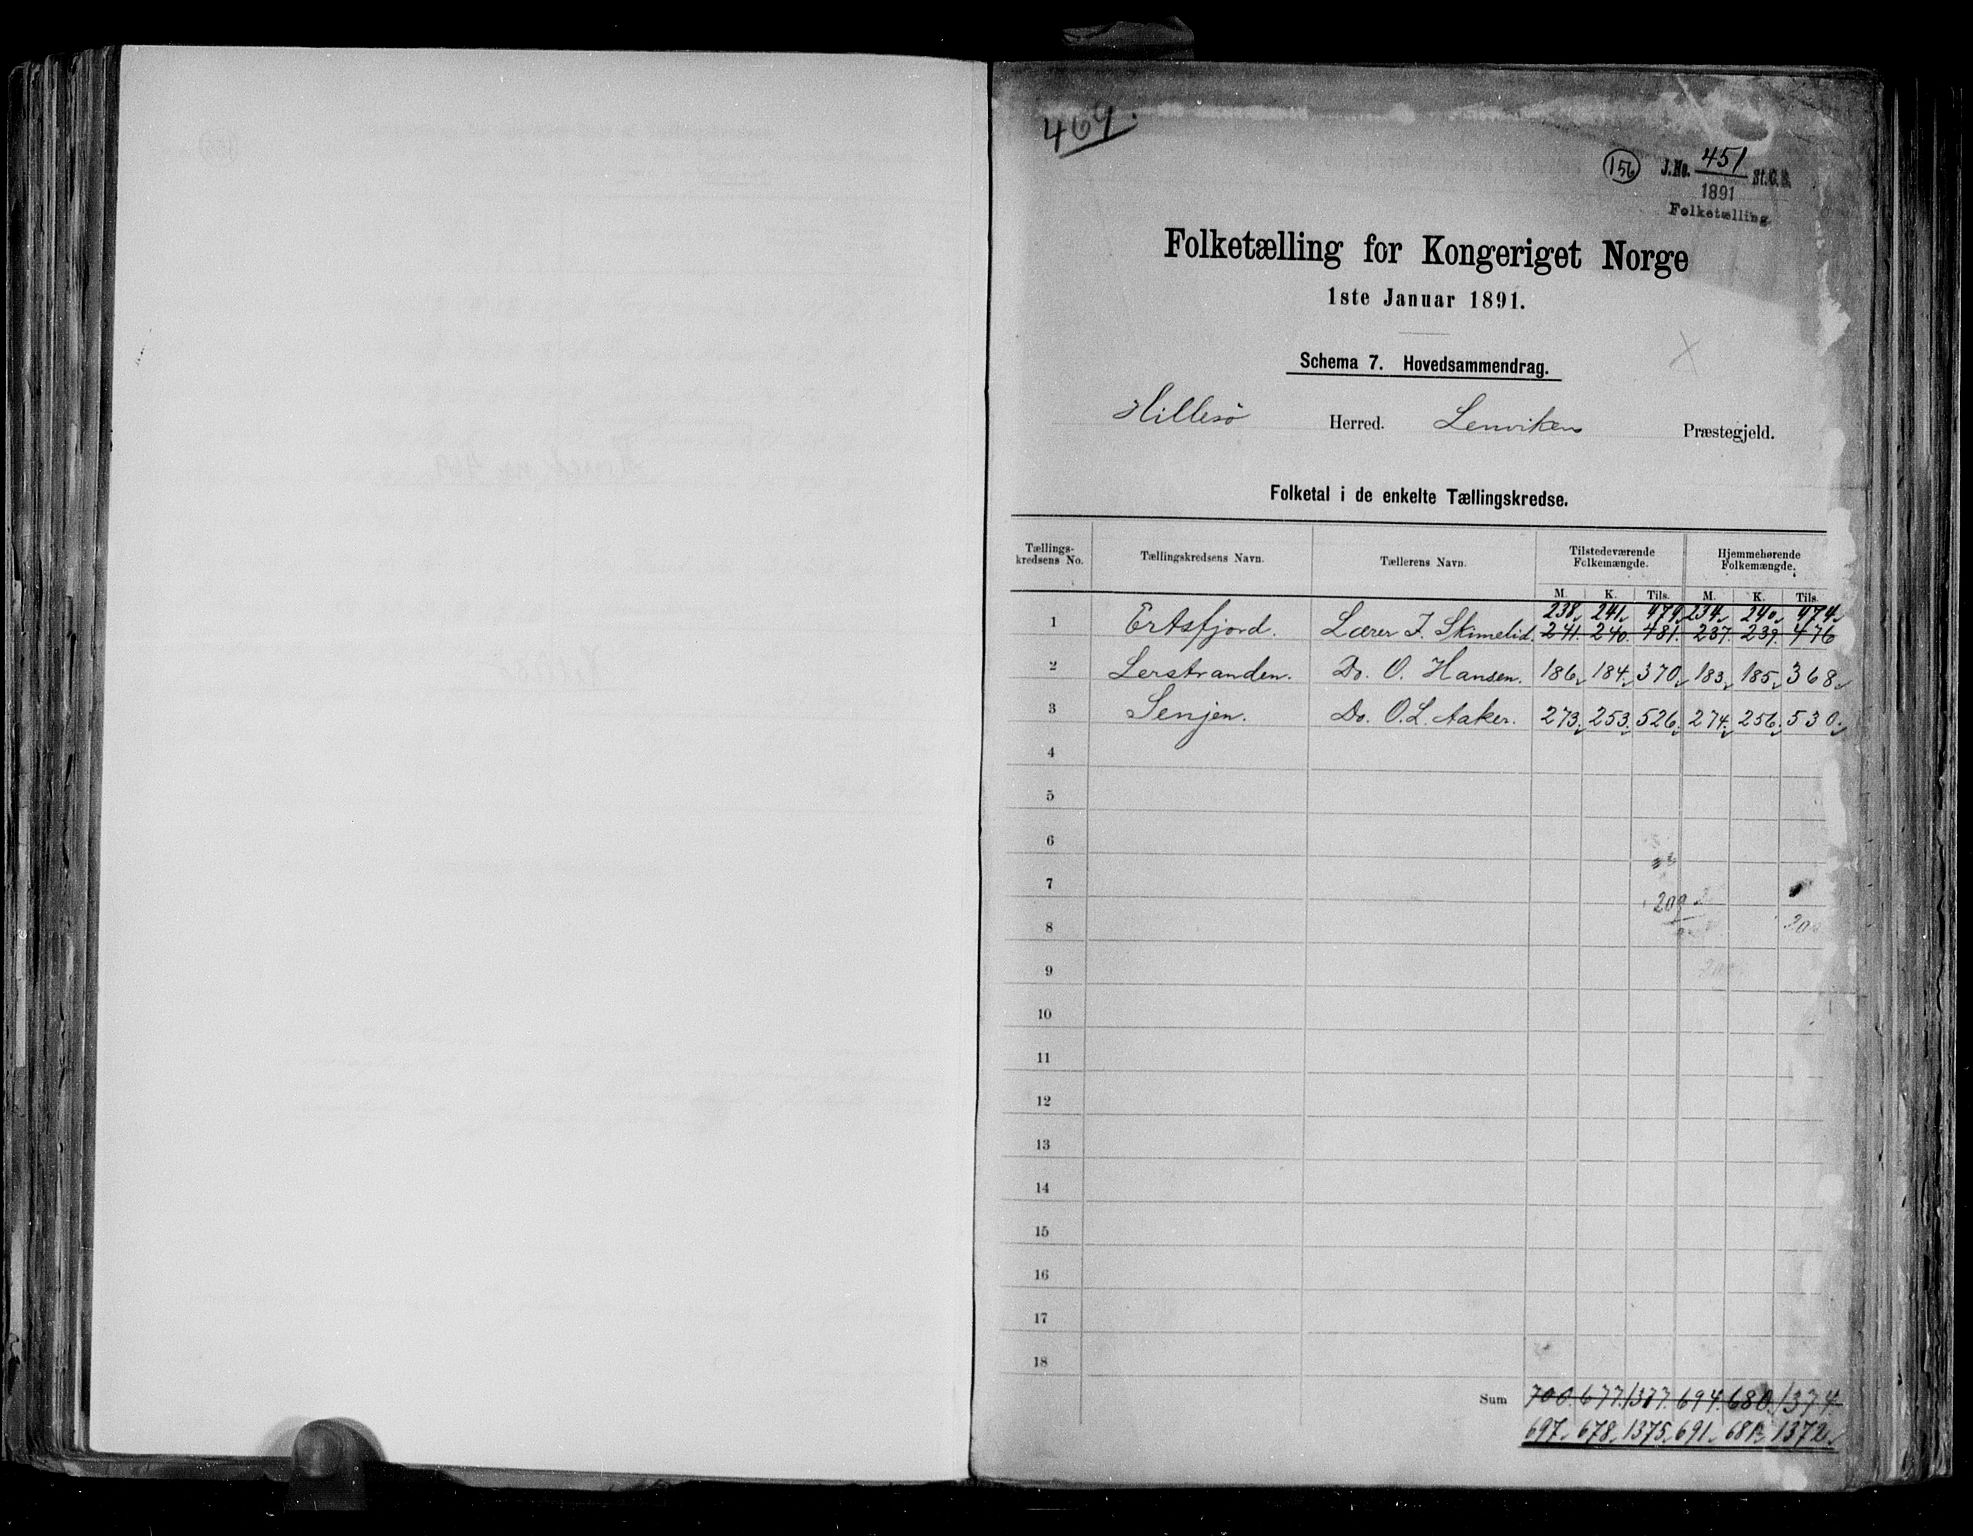 469.
156 J.No. 451 St.C.B.
1891
Folketælling
Folketælling for Kongeriget Norge
1ste Januar 1891.
Schema 7. Hovedsammendrag.
Hillesö Herred. Lenviken Præstegjeld.
Folketal i de enkelte Tællingskredse.
Tællings-kredsens No. Tællingskredsens Navn. Tællerens Navn. Tilstedeværende Folkemængde. Hjemmehørende Folkemængde.
M. K. Tils. M. K. Tils.
238 241 479 234 240 474
1 Ertsfjord. Lærer J. Skimelid. 241. 240. 481. 237. 239. 476
2 Lerstranden. Do. O. Hansen. 186 184 370 183 185 368
3 Senjen. Do. O. L. Aaker. 273. 253. 526. 274. 256. 530
4
5
6
7
209
8
9
10
11
12
13
14
15
16
17
18
Sum 700. 677. 1377. 694. 680. 1374.
697 678 1375 691 681 1372